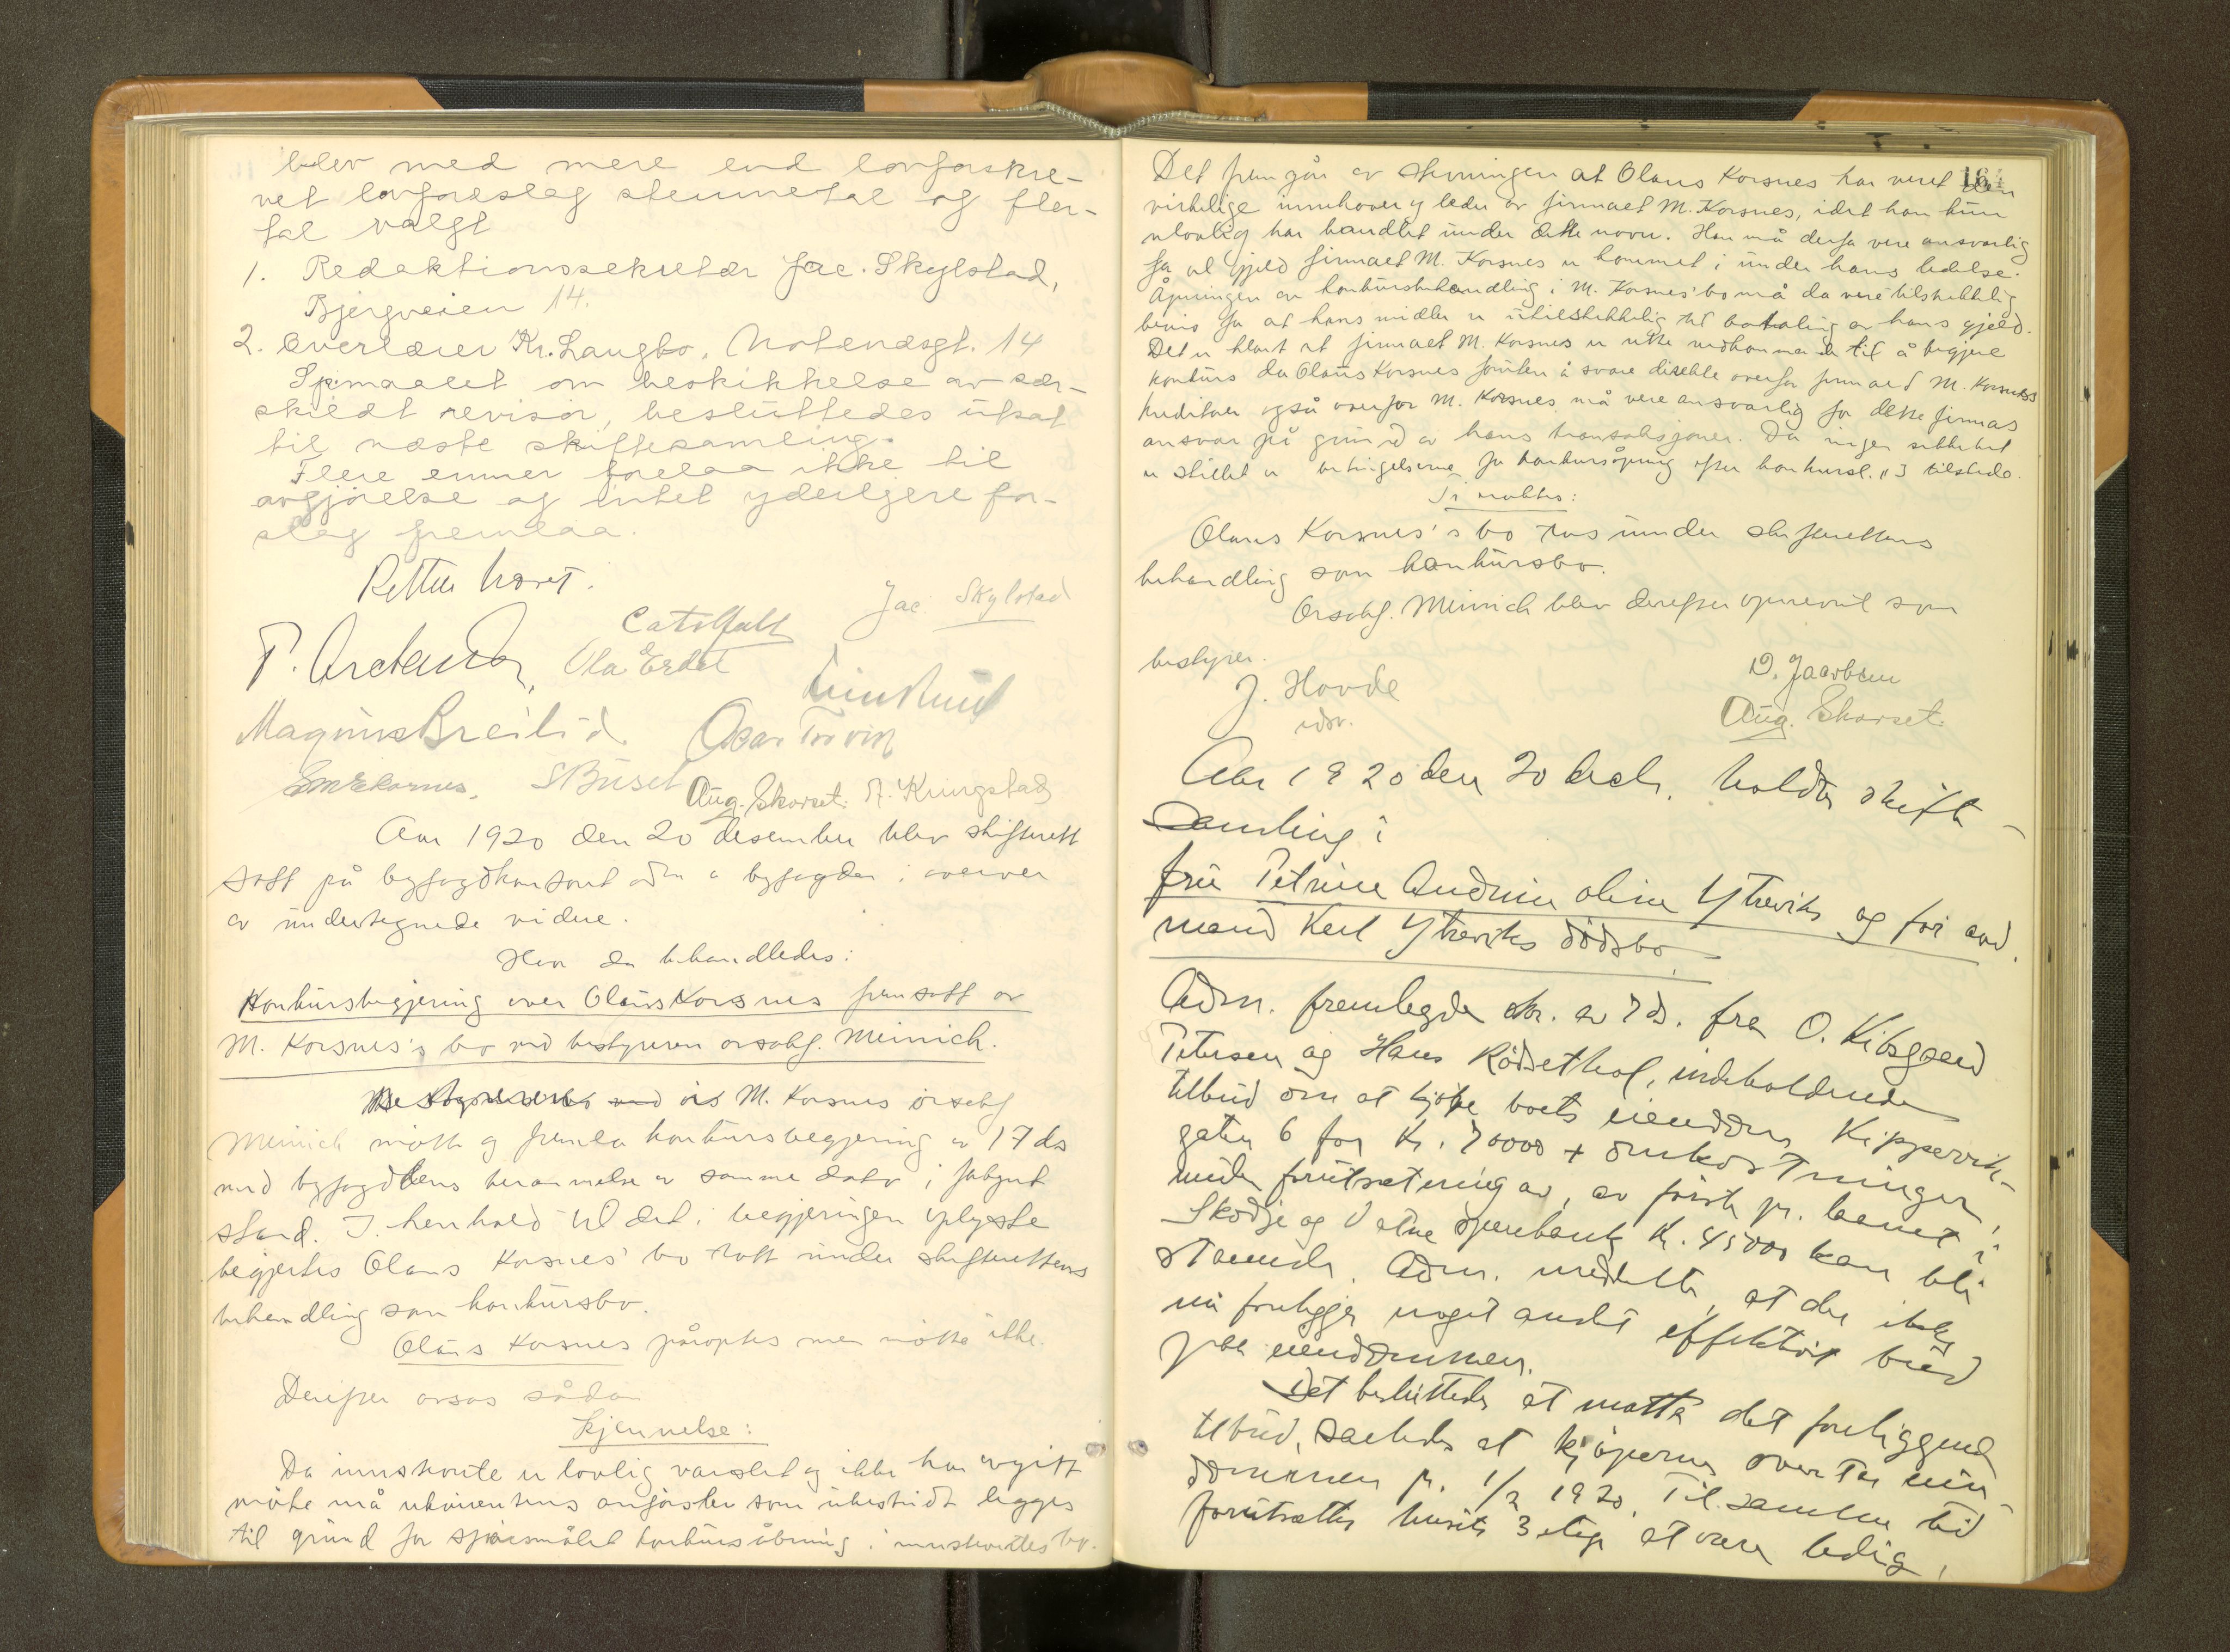 blev med mere end lovforskre-
vet lovforeslag stemmetal og fler-
tal valgt
1. Redaktionssekretær Jac. Skylstad,
Bjergveien 14.
2. Overlærer Kr. Langbo, Notenæsgt. 14
Spmaalet om beskikkelse av sær-
skildt revisor, besluttedes utsat
til næste skiftesamling.
Flere emner forelaa ikke til
avgjørelse og intet yderligere for-
slag fremlaa.
Retten hævet.
Jac Skylstad
P. Ola
Magnus Breilid Oscar
SBusel Aug. Skorset. Kringstad
Aar 1920 den 20 desember blev skifterett
satt på byfogdkontoret adm a byfogden i overver
av undertegnede vidne.
Hvor da behandledes:
Konkursbegjering over Olaus Korsnes fremsatt av
M. Korsnes's bo ved bestyreren orsakf. Meinich.
M. Korsnes orsakf
Meinich møtte og fremla konkursbegjering av 17 ds
med byfogdens berammelse av samme dato i forkynt
stand. I henhold til det i begjeringen oplyste
begjertes Olaus Korsnes' bo tatt under skifterettens
behandling som konkursbo.
Olaus Korsnes påroptes men møtte ikke.
Derefter avsas sådan
Kjennelse:
Da innstevnte er lovlig varslet og ikke har avgitt
møte må rekvirentens anførsler som ubestridt legges
til grund for spørsmålet konkursåbning i innstevntes bo.
16
Det fremgår av stevningen at Olaus Korsnes har veret den
virkelige innehaver og leder av firmaet M. Korsnes, idet han kun
ulovlig har handlet under dette navn. Han må derfor vere ansvarlig
for al gjeld firmaet M. Korsnes er kommet i under hans ledelse.
Åpningen av konkursbehandling i M. Korsnes' bo må da vere tilstrekkelig
bevis for at hans midler er utilstrekkelig til betaling av hans gjeld.
Det er klart at firmaet M. Korsnes er rette vedkommende til å begjere
konkurs da Olaus Korsnes foruten å svare direkte overfor firmaet M. Korsness
kreditorer også overfor M. Korsnes må vere ansvarlig for dette firmas
ansvar på grund av hans transaksjoner. Da ingen sikkerhet
er stillet er betingelserne for konkursåpning efter konkursl. § 3 tilstede.
Ti
Olaus Korsnes's bo tas under skifterettens
behandling som konkursbo.
Orsakf. Meinich blev derefter opnevnt som
bestyrer.
J. Hovde D. Jacobsen
Aug. Skorset.
Aar 1920 den 20 decb. holdtes skifte-
samling i
fru Petrine Andrine Oline Ytreviks og før avd.
mand Karl Ytreviks dødsbo.
Adm. fremlegde skr. av 7 ds. fra O. Kibsgaard
Petersen og Hans Rødsethol, indeholdende
tilbud om at kjøpe boets eiendom Kippervik-
gaten 6 for kr. 70000 + omkostninger,
under forutsætning av, av første pr. laanet i
Skodje og Vatne sparebank kr. 45000 kan bli
staaende. Adm. meddelte, at der ikke
nu foreligger noget andet effektivt bud
paa eiendommen.
Det besluttedes at motta det foreliggende
tilbud, saaledes at kjøperne overtar eien-
dommen pr. 1/2 1920. Til samme tid
forutsættes husets 3 etage at være ledig,